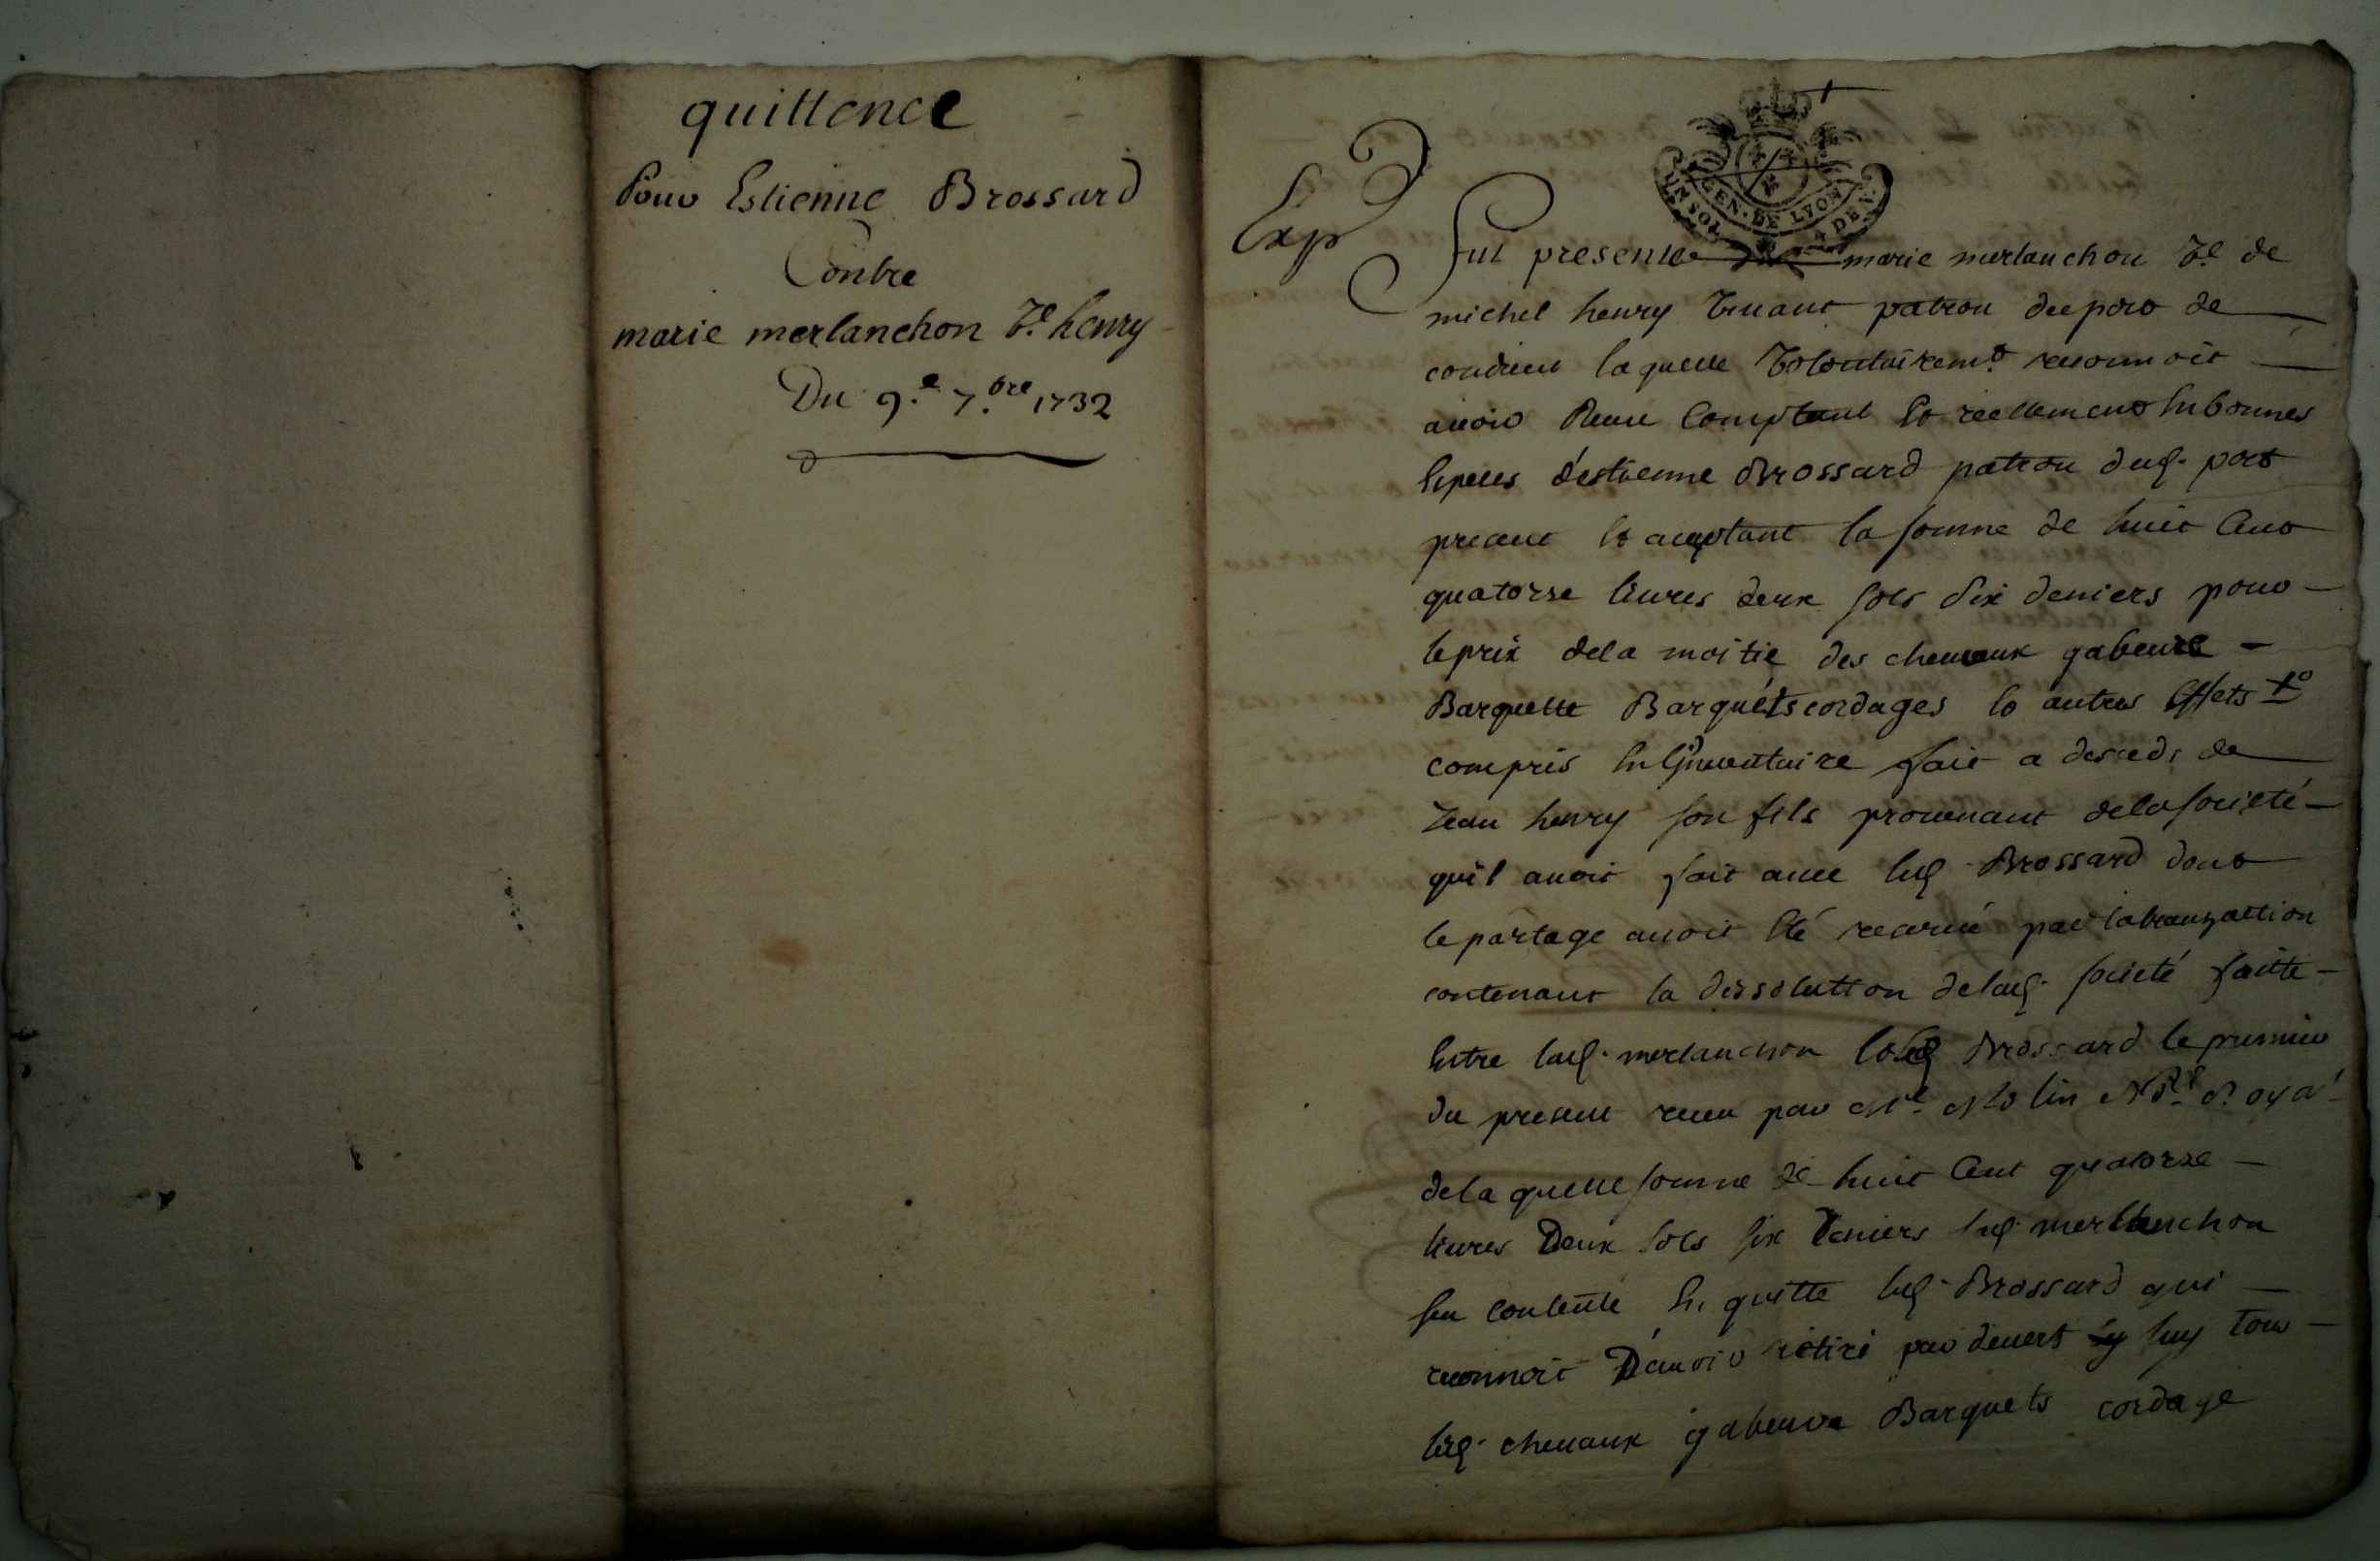 quittence
Pour Estienne Brossard
Contre
marie merlanchon Ve. henry
Du 9.e 7.bre 1732
Exp
GEN. DE LYON
UN SOL 4 DEN.
fut presente marie merlanchon Ve. de
michel henry viuant patron du port de
condrieu laquelle volontairemt. reconnoit
auoir Receu Comptant et réellement En bonnes
Especes d'estienne Brossard patron dud. port
present et aceptant la somme de huit Cent
quatorse liures deux sols six deniers pour
le prix dela moitié des cheuaux
Barquette Barquéts cordages et autres Effets
compris En Linuentaire fait a desseds de
Jean henry son fils prouenant dela societé
quil auoit fait auec led. Brossard dont
le partage auoit Eté reserué par la transaction
contenant la dissolution delad. societé faitte
Entre lad. merlanchon et led. Brossard le premier
du present receu par Me. lin Nore. Royal
dela quelle somme de huit Cent quatorse
liures Deux sols six Deniers lad. merlanchon
sen contente En quitte led. Brossard qui
reconnoit D'auoir retiré par deuert luy tous
lesd. cheuaux Barquets cordage